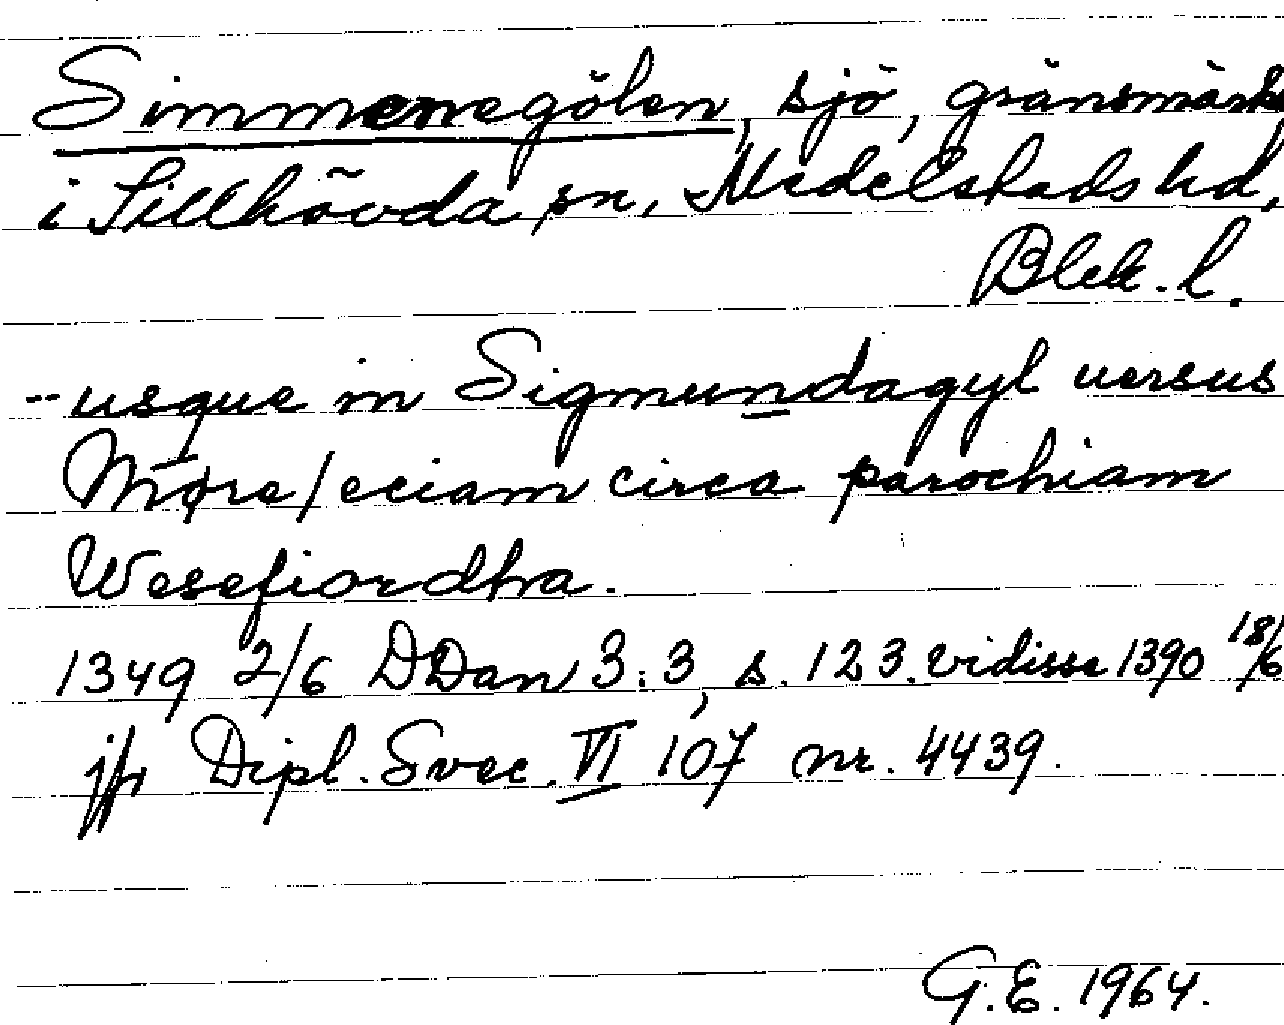 Simmenegölen, sjö, gränsmärke
i Sillhövda sn, Medelstads hd,
Blek. l.
-- usque in Sigmundagyl uersus
Møre / eciam circa parochiam
Wesefiordha.
1349 2/6 DDan 3:3, s. 123. vidisse 1390 18/6
jfr Dipl. Svec. VI 107 nr. 4439.
G.E. 1964.